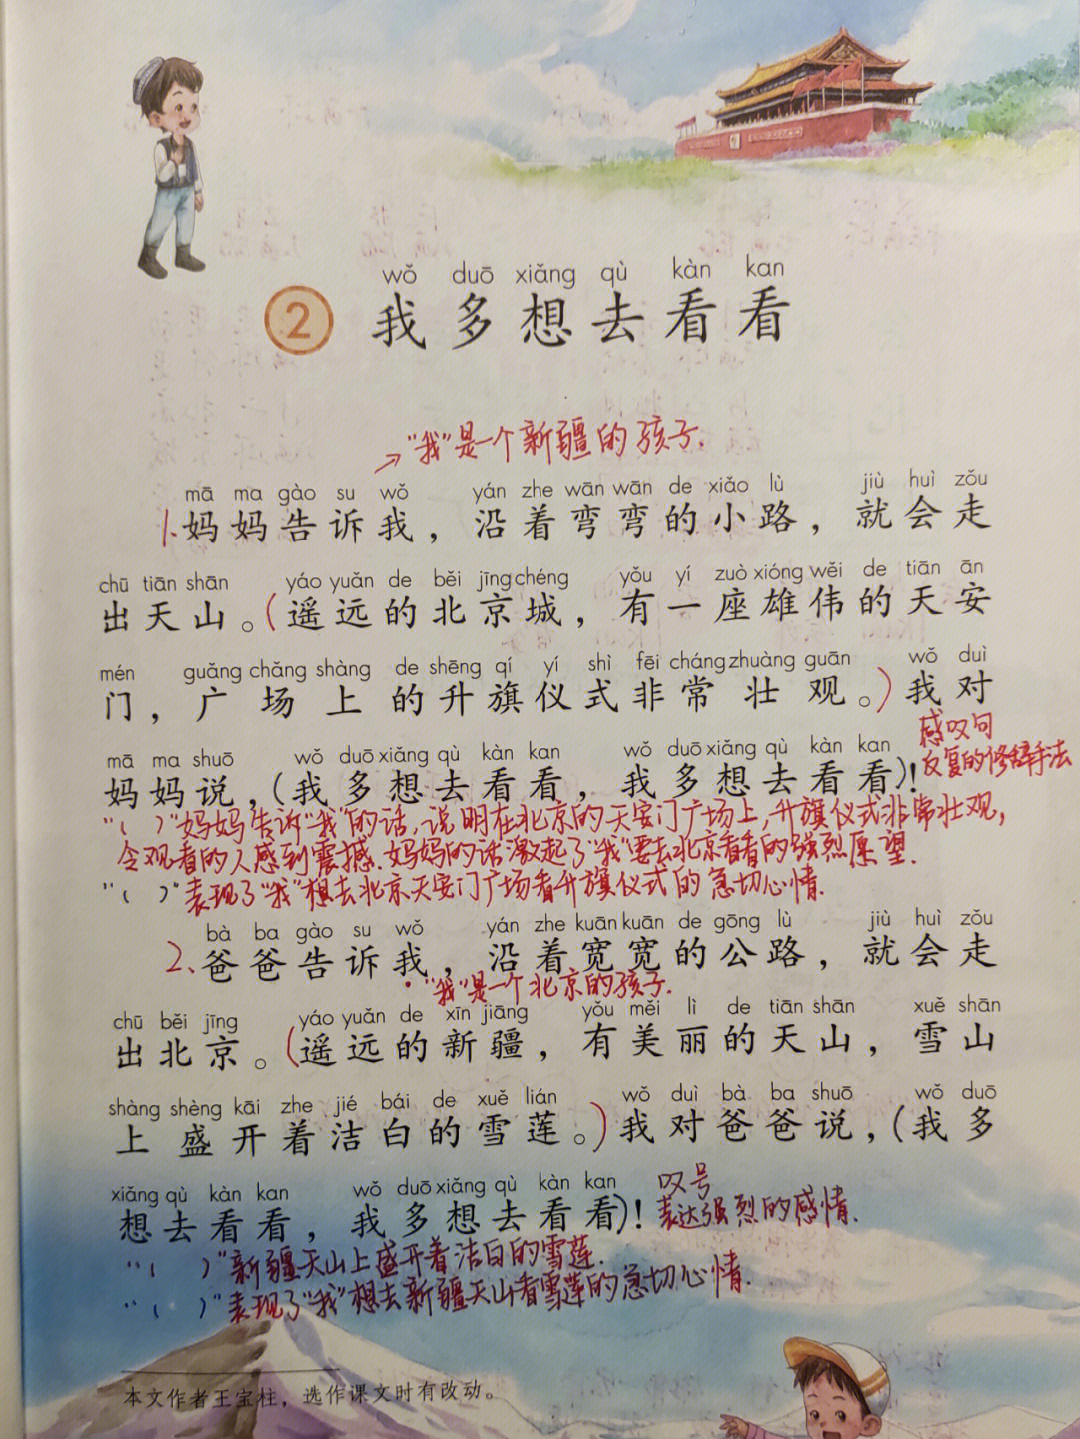 wǒ duō xiǎng qù kàn kan
2 我多想去看看
→"我"是一个新疆的孩子.
mā ma gào su wǒ yán zhe wān wān de xiǎo lù jiù huì zǒu
1.妈妈告诉我，沿着弯弯的小路，就会走
chū tiān shān yáo yuǎn de běi jīng chéng yǒu yí zuò xióng wěi de tiān ān
出天山。(遥远的北京城，有一座雄伟的天安
mén guǎng chǎng shàng de shēng qí yí shì fēi cháng zhuàng guān wǒ duì
门，广场上的升旗仪式非常壮观。)我对
感叹句
mā ma shuō wǒ duō xiǎng qù kàn kan wǒ duō xiǎng qù kàn kan
反复的修辞手法
妈妈说，(我多想去看看，我多想去看看)!
"( )"妈妈告诉"我"的话,说明在北京的天安门广场上,升旗仪式非常壮观,
令观看的人感到震撼.妈妈的话激起了"我"要去北京看看的强烈愿望.
"( )"表现了"我"想去北京天安门广场看升旗仪式的急切心情.
bà ba gào su wǒ yán zhe kuān kuān de gōng lù jiù huì zǒu
2、爸爸告诉我，沿着宽宽的公路，就会走
"我"是一个北京的孩子.
chū běi jīng yáo yuǎn de xīn jiāng yǒu měi lì de tiān shān xuě shān
出北京。(遥远的新疆，有美丽的天山，雪山
shàng shèng kāi zhe jié bái de xuě lián wǒ duì bà ba shuō wǒ duō
上盛开着洁白的雪莲。)我对爸爸说，(我多
xiǎng qù kàn kan wǒ duō xiǎng qù kàn kan
叹号
想去看看，我多想去看看)!
表达强烈的感情.
"( )"新疆天山上盛开着洁白的雪莲.
"( )"表现了"我"想去新疆天山看雪莲的急切心情.
本文作者王宝柱，选作课文时有改动。